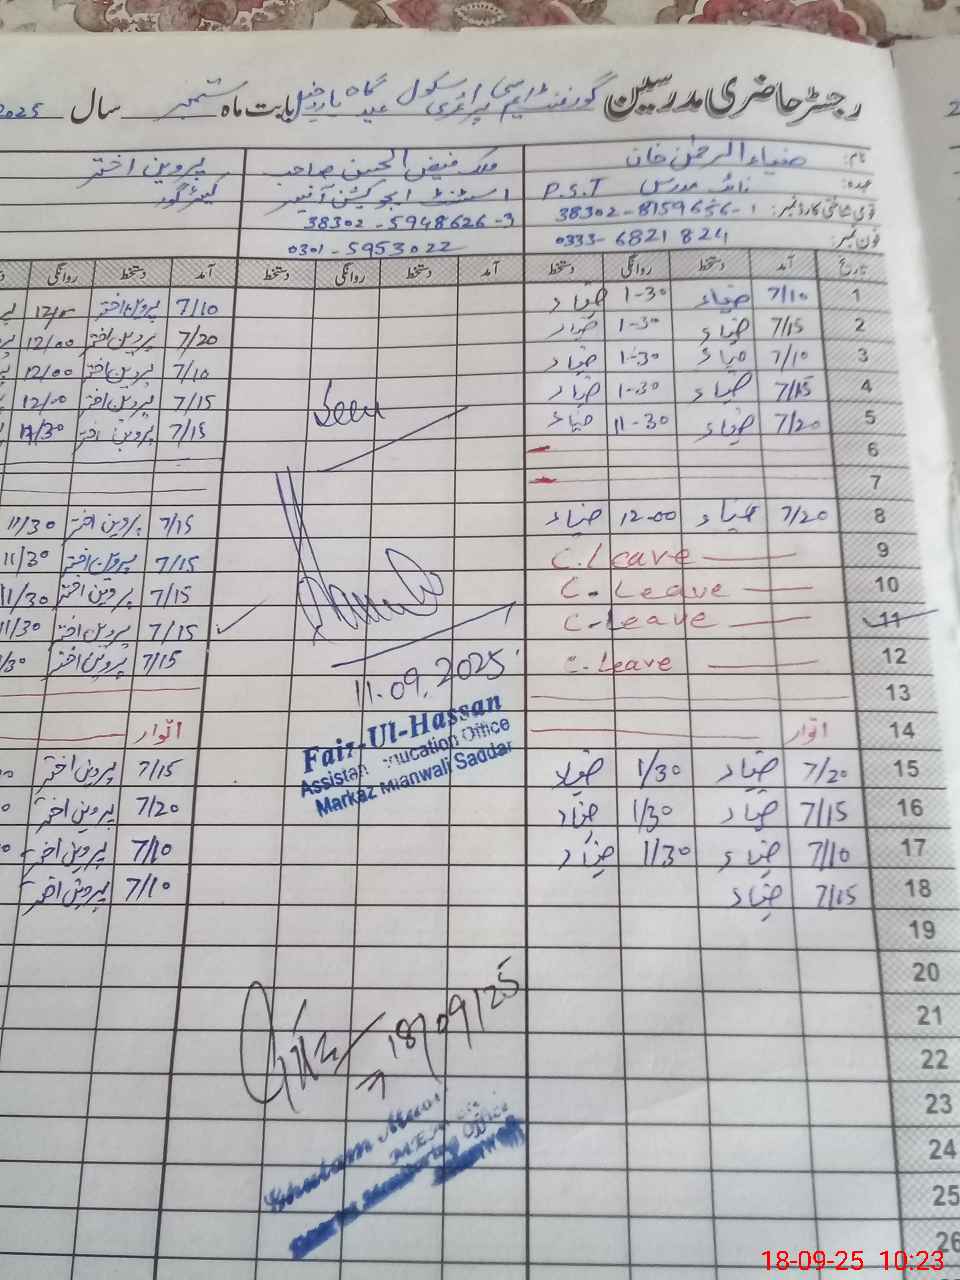 رجسٹر حاضری مدرسین گورنمنٹ ایم سی پرائمری سکول عید گاہ بابت ماہ ستمبر سال 2025
نام: ضیاء الرحمٰن خان ملک فیض الحسن صاحب پروین اختر
عہدہ: مدرس P.S.T اسسٹنٹ ایجوکیشن آفیسر کیئر گور
قومی شناختی کارڈ نمبر: 38302-8159656-1 38302-5948626-3
فون نمبر: 0333-6821824 0301-5953022
تاریخ آمد دستخط روانگی دستخط آمد دستخط روانگی دستخط آمد دستخط روانگی
1 7/10 ضیاء 1-30 ضیاء 7/10 پروین اختر
2 7/15 ضیاء 1-30 ضیاء 7/20 پروین اختر 12/00
3 7/10 ضیاء 1-30 ضیاء 7/10 پروین اختر 12/00
4 7/15 ضیاء 1-30 ضیاء Seen 7/15 پروین اختر 12/00
5 7/20 ضیاء 11-30 ضیاء 7/15 پروین اختر 11/30
6
7
8 7/20 ضیاء 12-00 ضیاء 7/15 پروین اختر 11/30
9 C.Leave 7/15 پروین اختر 11/30
10 C.Leave 7/15 پروین اختر 11/30
11 C.Leave 7/15 پروین اختر 11/30
12 C.Leave 7/15 پروین اختر
11.09.2025
13
14 اتوار اتوار
Faiz-Ul-Hassan
Assistant Education Office
Markaz Mianwali Saddar
15 7/20 ضیاء 1/30 ضیاء 7/15 پروین اختر
16 7/15 ضیاء 1/30 ضیاء 7/20 پروین اختر
17 7/10 ضیاء 1/30 ضیاء 7/10 پروین اختر
18 7/15 ضیاء 7/10 پروین اختر
19
20
21
18/09/25
22
23
24
25
26
Ghulam
Monitoring Office
18-09-25 10:23